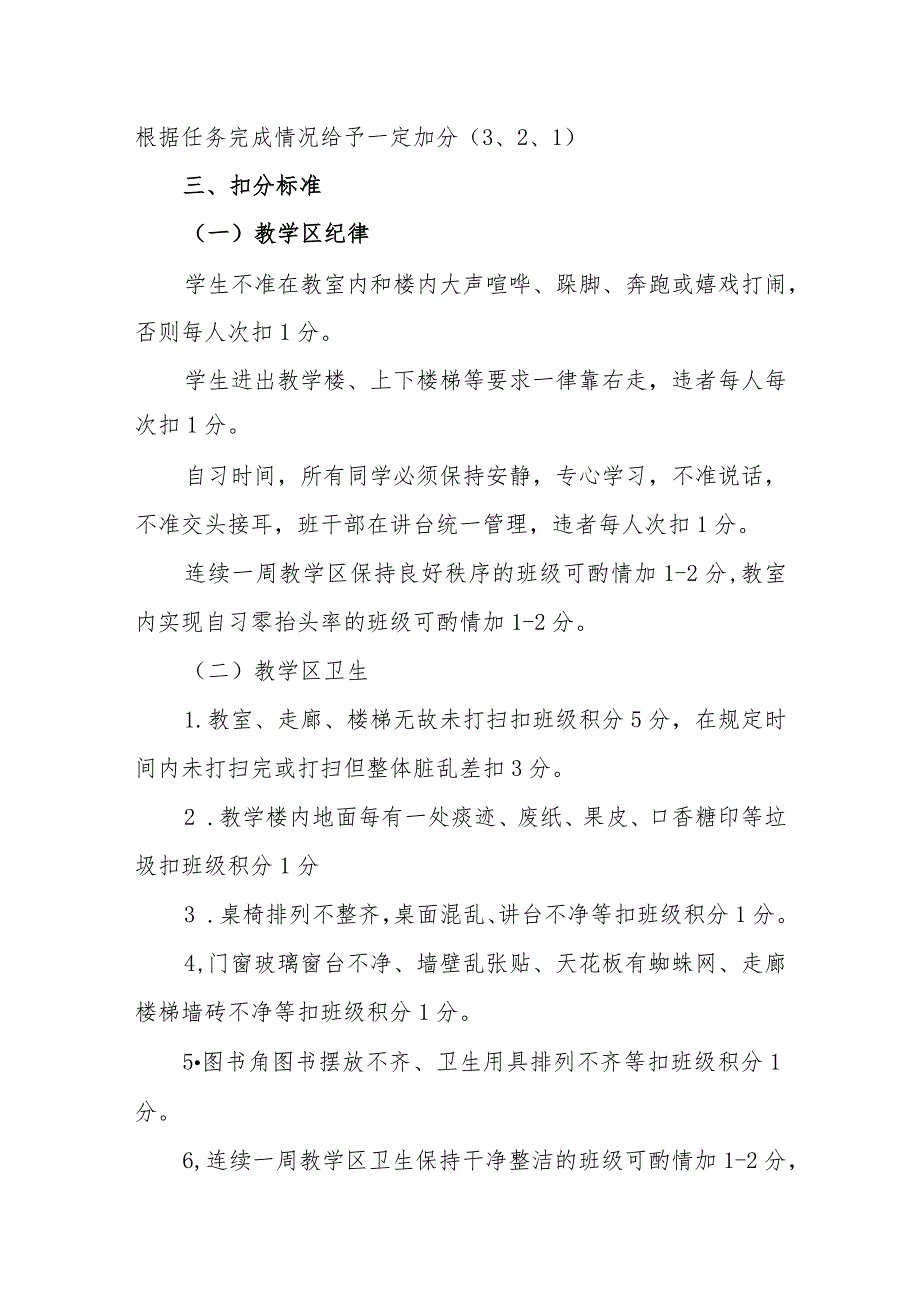 根据任务完成情况给予一定加分（3、2、1）
三、扣分标准
（一）教学区纪律
学生不准在教室内和楼内大声喧哗、跺脚、奔跑或嬉戏打闹，
否则每人次扣1分。
学生进出教学楼、上下楼梯等要求一律靠右走，违者每人每
次扣1分。
自习时间，所有同学必须保持安静，专心学习，不准说话，
不准交头接耳，班干部在讲台统一管理，违者每人次扣1分。
连续一周教学区保持良好秩序的班级可酌情加1-2分,教室
内实现自习零抬头率的班级可酌情加1-2分。
（二）教学区卫生
1.教室、走廊、楼梯无故未打扫扣班级积分5分，在规定时
间内未打扫完或打扫但整体脏乱差扣3分。
2 .教学楼内地面每有一处痰迹、废纸、果皮、口香糖印等垃
圾扣班级积分1分
3 .桌椅排列不整齐,桌面混乱、讲台不净等扣班级积分1分。
4,门窗玻璃窗台不净、墙壁乱张贴、天花板有蜘蛛网、走廊
楼梯墙砖不净等扣班级积分1分。
5•图书角图书摆放不齐、卫生用具排列不齐等扣班级积分1
分。
6,连续一周教学区卫生保持干净整洁的班级可酌情加1-2分，